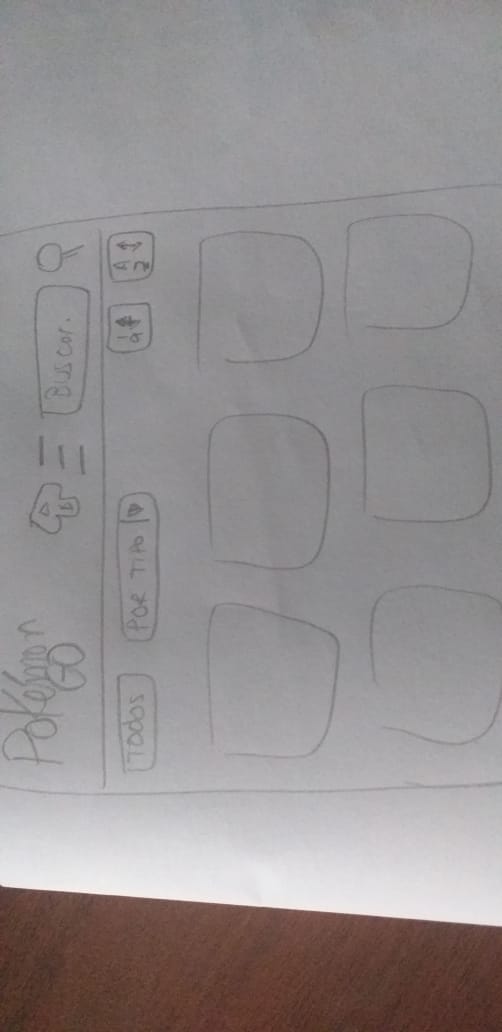 Pokémon
GO
Buscar.
TODOS
POR TIPO
1
9
A
Z